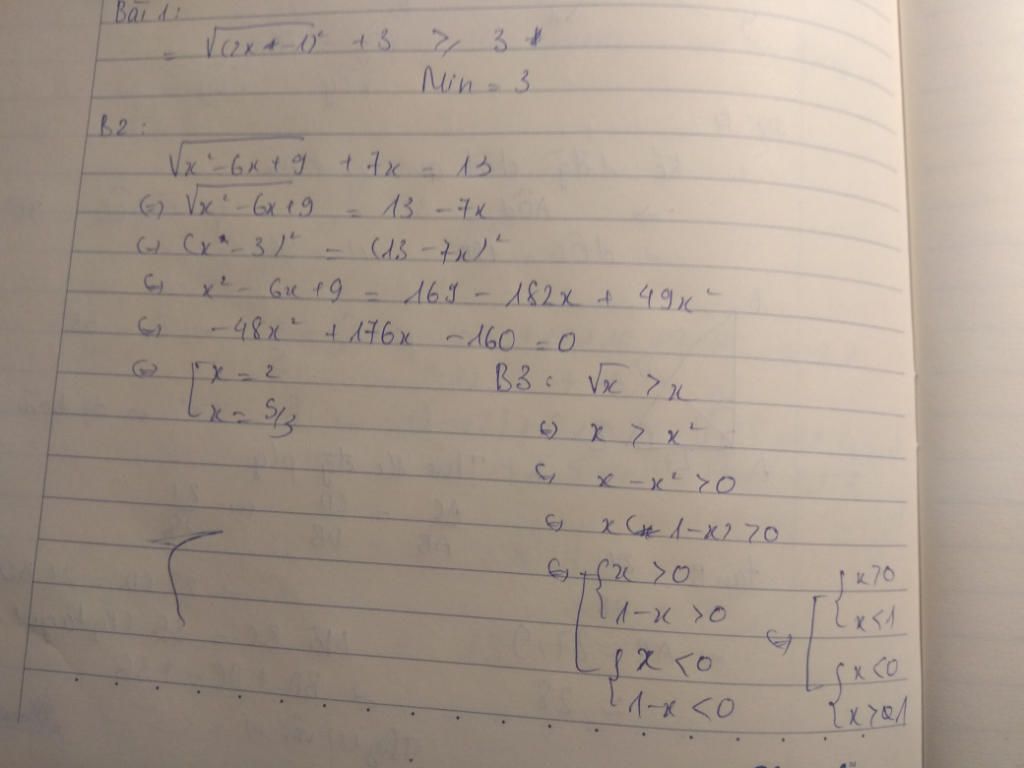 Bài 1:
= √(2x-1)² + 3 ≥ 3
Min = 3
B2:
√x²-6x+9 + 7x = 13
(=) √x²-6x+9 = 13 - 7x
(=) (x - 3)² = (13 - 7x)²
(=) x² - 6x + 9 = 169 - 182x + 49x²
(=) -48x² + 176x - 160 = 0
(=) [ x = 2
x = 5/3
B3: √x > x
(=) x > x²
(=) x - x² > 0
(=) x(1-x) > 0
(=) [ { x > 0
1-x > 0
{ x < 0
1-x < 0
(=) [ { x>0
x<1
{ x<0
x>1